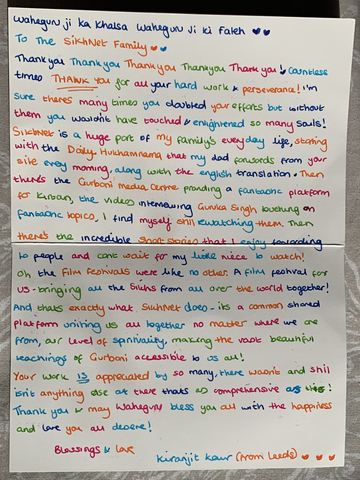 Waheguru ji ka Khalsa Waheguru Ji Ki Fateh
To The SikhNet Family
Thankyou Thankyou Thankyou Thankyou Thank you! Countless
times THANK YOU for all your hard work & perseverance! I'm
sure theres many times you doubted your efforts but without
them you wouldnt have touched & enlightened so many souls!
SikhNet is a huge part of my family's everyday life, starting
with the Daily Hukhamnama that my dad forwards from your
site every morning, along with the english translation. Then
there's the Gurbani Media Centre providing a fantastic platform
for Kirtan, the videos interviewing Gurika Singh touching on
fantastic topics, I find myself still rewatching them. Then
there's the incredible short stories that I enjoy forwarding
to people and cant wait for my little niece to watch!
Oh the film festivals were like no other. A film festival for
us - bringing all the Sikhs from all over the world together!
And thats exactly what SikhNet does - its a common shared
platform uniting us all together no matter where we are
from, our level of spirituality, making the vast beautiful
teachings of Gurbani accessible to us all!
Your work is appreciated by so many, there wasnt and still
isn't anything else out there thats as comprehensive as this!
Thank you & may Waheguru bless you all with the happiness
and love you all deserve!
Blessings & love
Kiranjit Kaur (from Leeds)